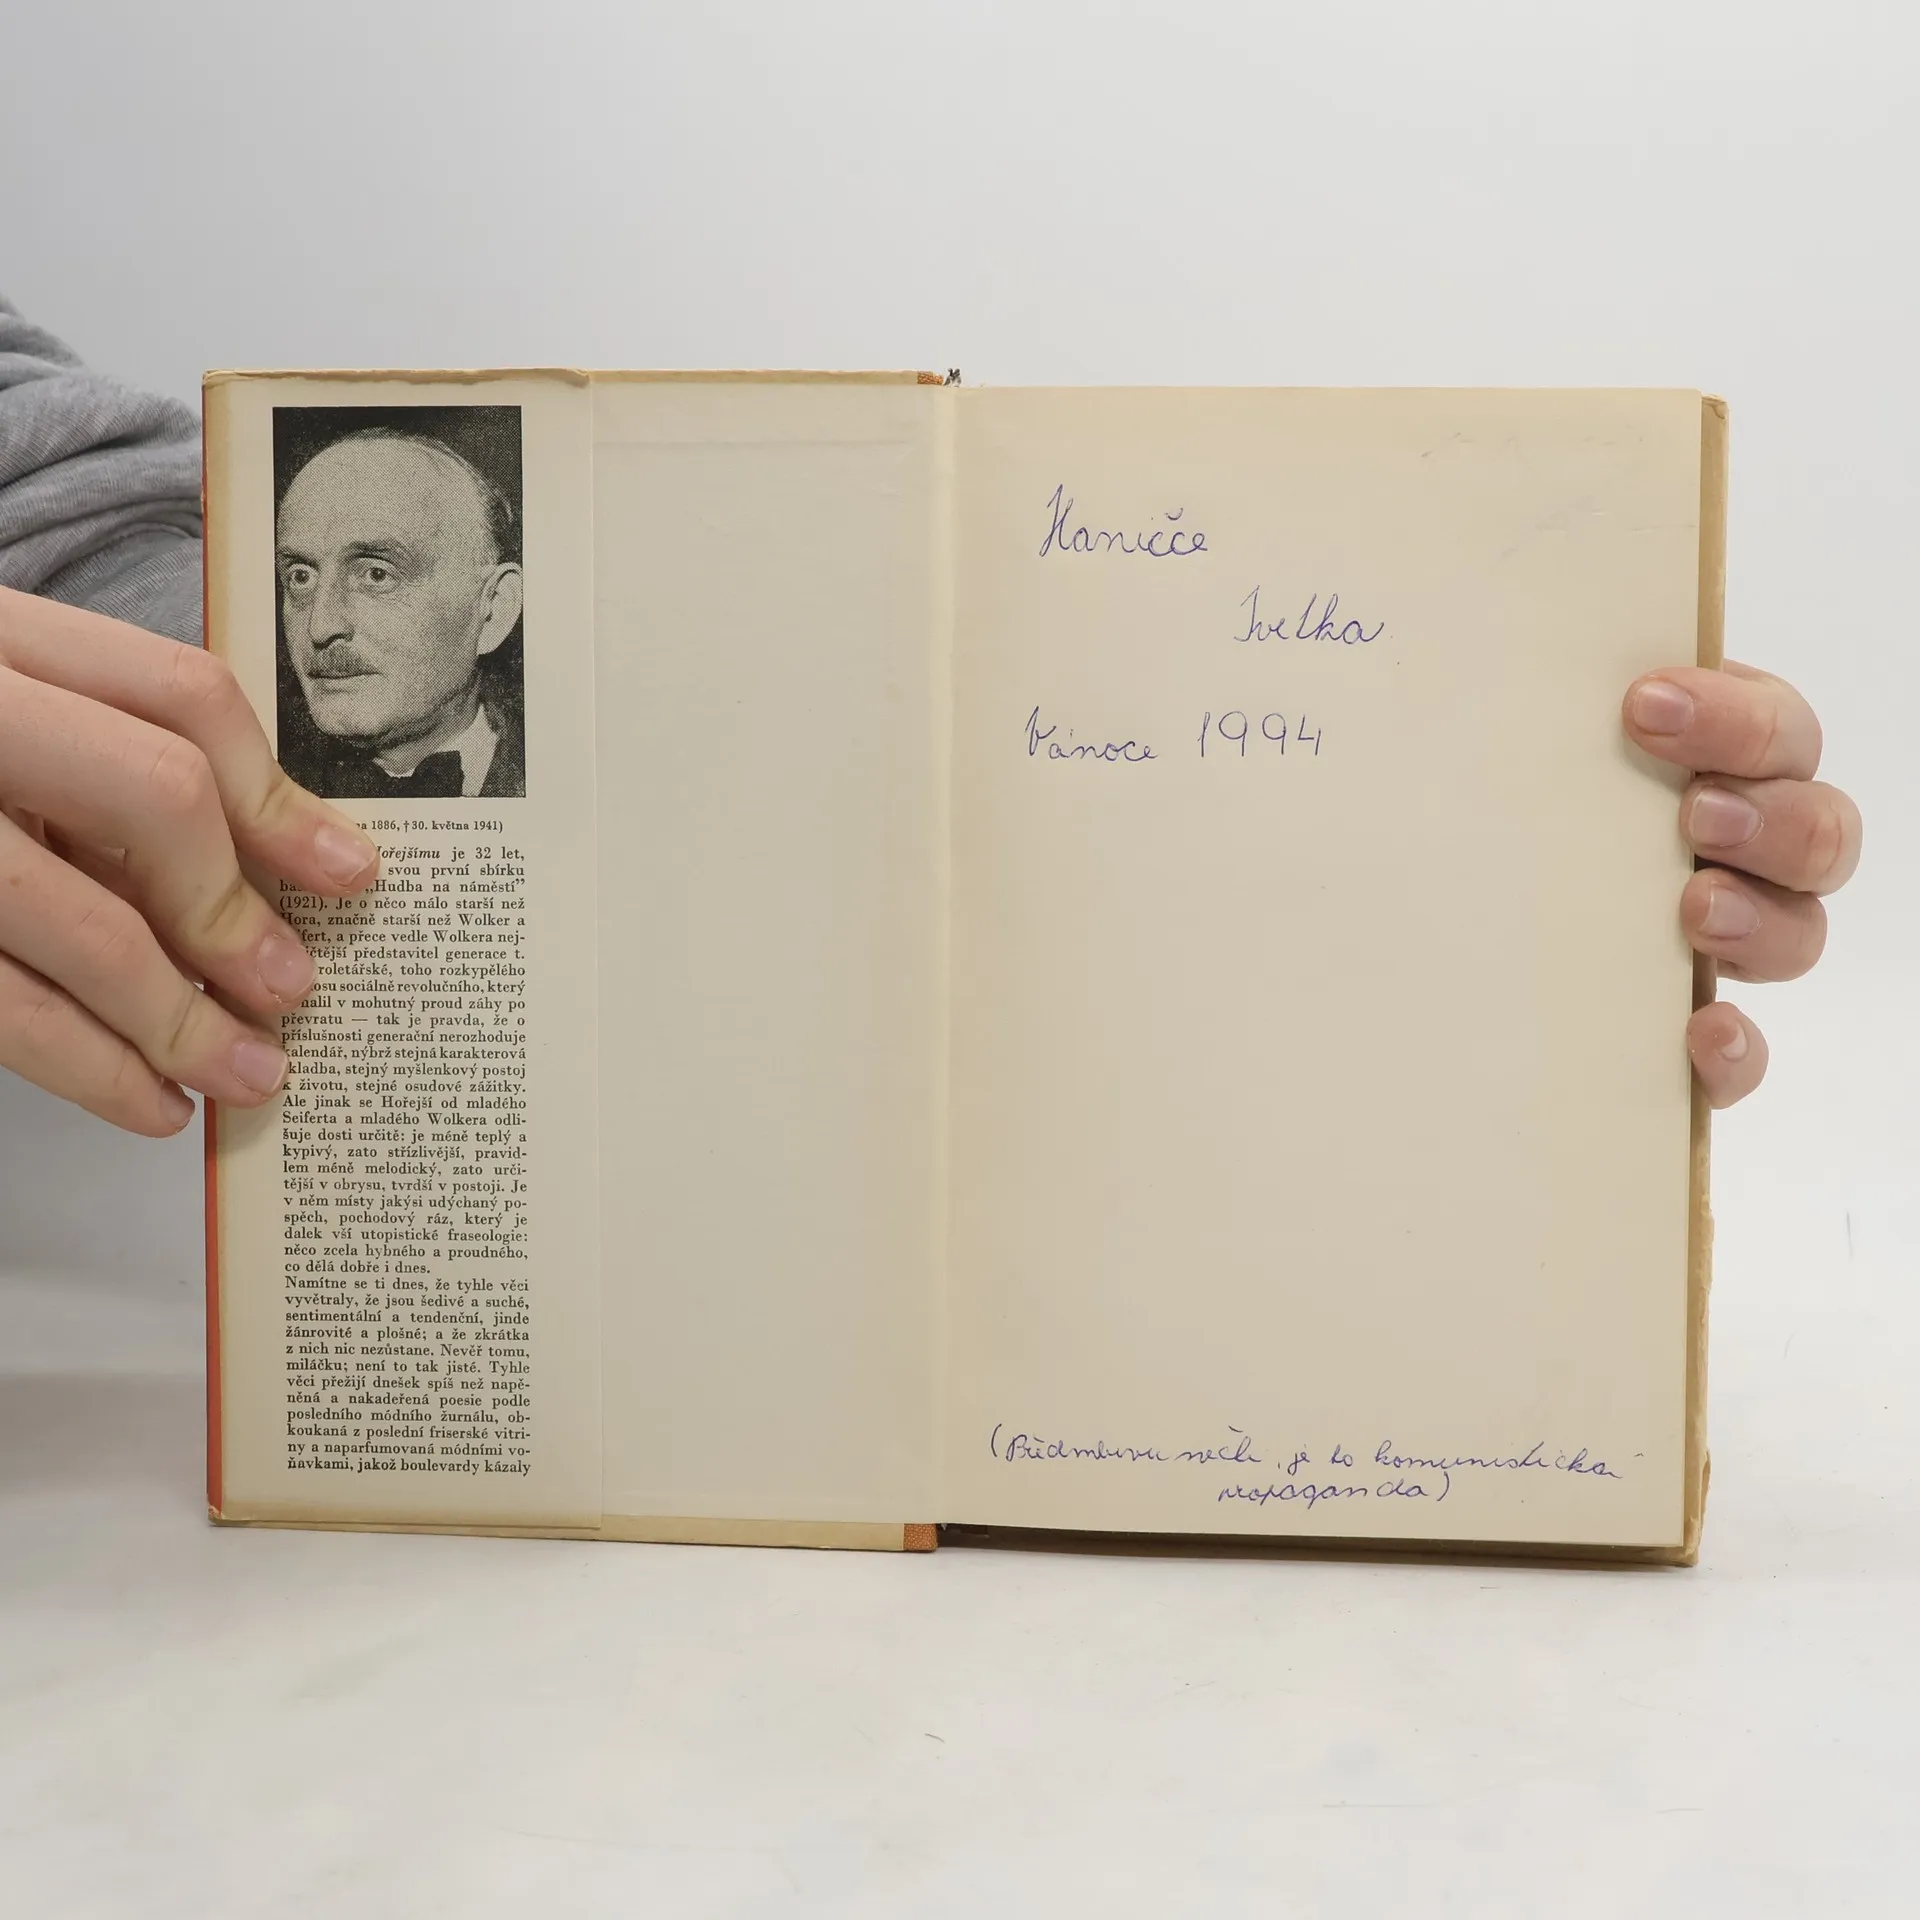 na 1886, †30. května 1941)
Hořejšímu je 32 let,
svou první sbírku
„Hudba na náměstí”
(1921). Je o něco málo starší než
Hora, značně starší než Wolker a
ifert, a přece vedle Wolkera nej-
ičtější představitel generace t.
roletářské, toho rozkypělého
osu sociálně revolučního, který
valil v mohutný proud záhy po
převratu — tak je pravda, že o
příslušnosti generační nerozhoduje
kalendář, nýbrž stejná karakterová
skladba, stejný myšlenkový postoj
k životu, stejné osudové zážitky.
Ale jinak se Hořejší od mladého
Seiferta a mladého Wolkera odli-
šuje dosti určitě: je méně teplý a
kypivý, zato střízlivější, pravid-
lem méně melodický, zato urči-
tější v obrysu, tvrdší v postoji. Je
v něm místy jakýsi udýchaný po-
spěch, pochodový ráz, který je
dalek vší utopistické fraseologie:
něco zcela hybného a proudného,
co dělá dobře i dnes.
Namítne se ti dnes, že tyhle věci
vyvětraly, že jsou šedivé a suché,
sentimentální a tendenční, jinde
žánrovité a plošné; a že zkrátka
z nich nic nezůstane. Nevěř tomu,
miláčku; není to tak jisté. Tyhle
věci přežijí dnešek spíš než napě-
něná a nakadeřená poesie podle
posledního módního žurnálu, ob-
koukaná z poslední friserské vitri-
ny a naparfumovaná módními vo-
ňavkami, jakož boulevardy kázaly
Haničče
Ivetka
Vánoce 1994
(Předmluvu nečti, je to komunistická
propaganda)